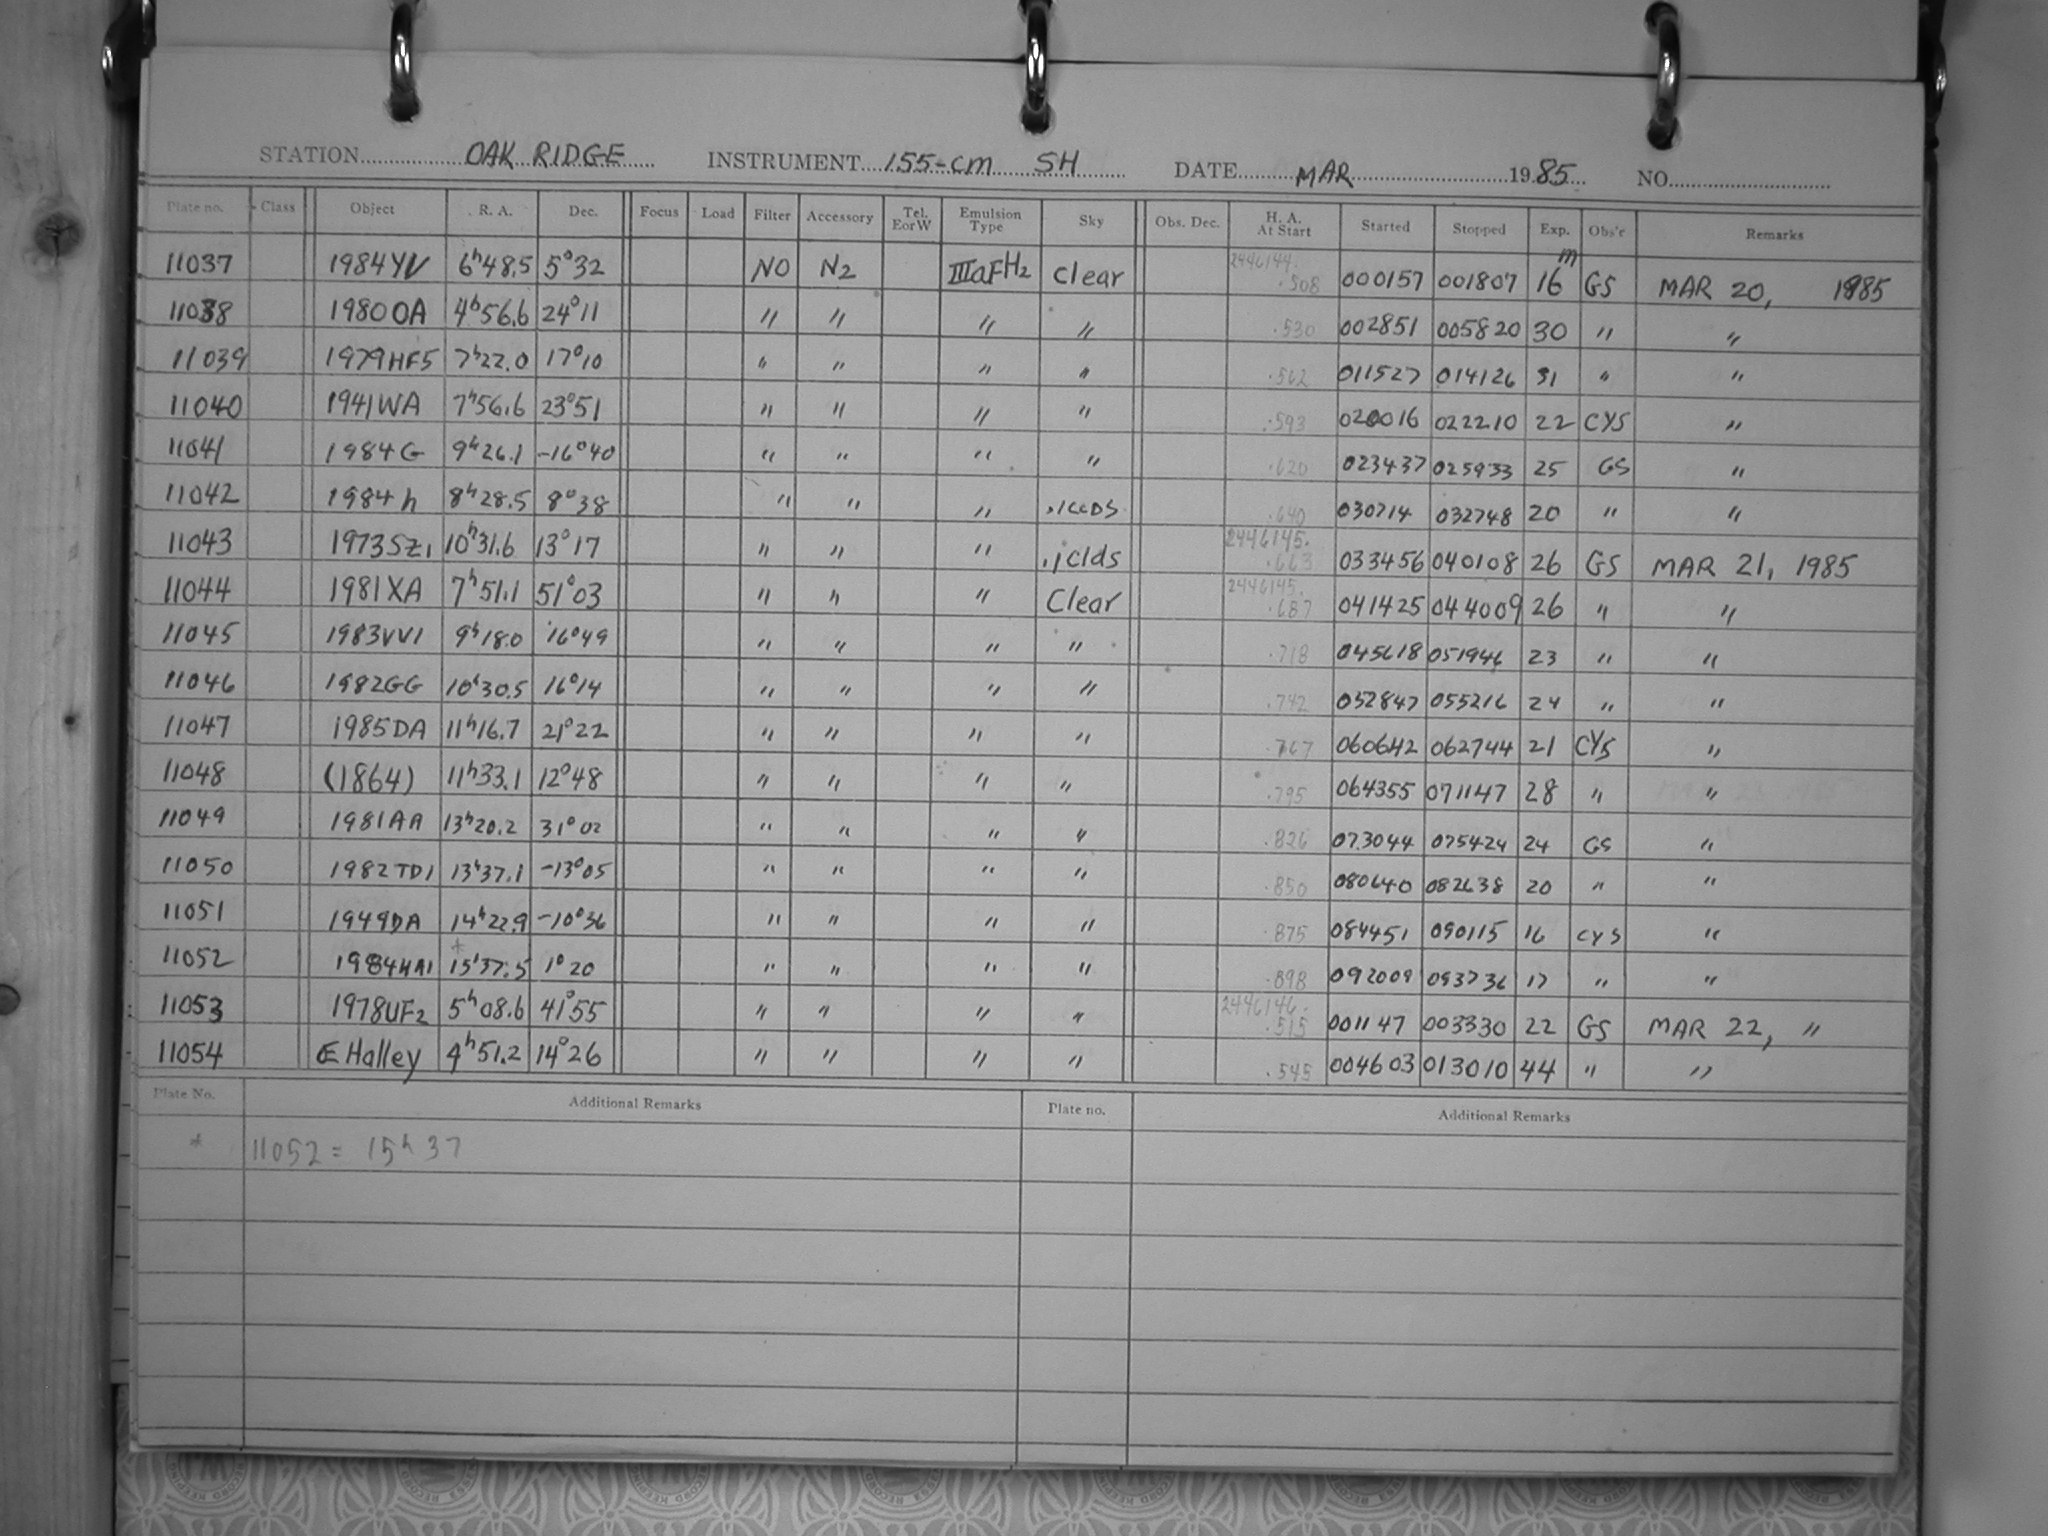 STATION OAK RIDGE INSTRUMENT 155-cm SH DATE MAR 1985 NO.
Plate no. Class Object R. A. Dec. Focus Load Filter Accessory Tel. EorW Emulsion Type Sky Obs. Dec. H. A. At Start Started Stopped Exp. Obs'r Remarks
11037 1984YV 6h48.5 5°32 NO N2 IIIaFH2 Clear 2446144. .508 000157 001807 16m GS MAR 20, 1985
11038 1980OA 4h56.6 24°11 " " " " .530 002851 005820 30 " "
11039 1979HF5 7h22.0 17°10 " " " " .562 011527 014126 31 " "
11040 1941WA 7h56.6 23°51 " " " " .593 020016 022210 22 CYS "
11041 1984G 9h26.1 -16°40 " " " " .620 023437 025933 25 GS "
11042 1984h 8h28.5 8°38 " " " .640 030714 032748 20 " "
11043 1973SZ1 10h31.6 13°17 " " " .1clds 2446145. .663 033456 040108 26 GS MAR 21, 1985
11044 1981XA 7h51.1 51°03 " " " Clear 2446145. .687 041425 044009 26 " "
11045 1983VV1 9h18.0 16°49 " " " " .718 045618 051946 23 " "
11046 1982GG 10h30.5 16°14 " " " " .742 052847 055216 24 " "
11047 1985DA 11h16.7 21°22 " " " " .767 060642 062744 21 CYS "
11048 (1864) 11h33.1 12°48 " " " " .795 064355 071147 28 " "
11049 1981AA 13h20.2 31°02 " " " " .826 073044 075424 24 GS "
11050 1982TD1 13h37.1 -13°05 " " " " .850 080640 082638 20 " "
11051 1949DA 14h22.9 -10°36 " " " " .875 084451 090115 16 CYS "
11052 1984HA1 15h37.5 * 1°20 " " " " .898 092009 093736 17 " "
11053 1978UF2 5h08.6 41°55 " " " " 2446146. .515 001147 003330 22 GS MAR 22, "
11054 Halley 4h51.2 14°26 " " " " .545 004603 013010 44 " "
Plate No. Additional Remarks Plate no. Additional Remarks
* 11052 = 15h 37